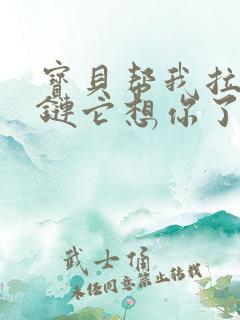 寶貝帮我拉
鏈它想你了
武士俑
未经同意禁止转载